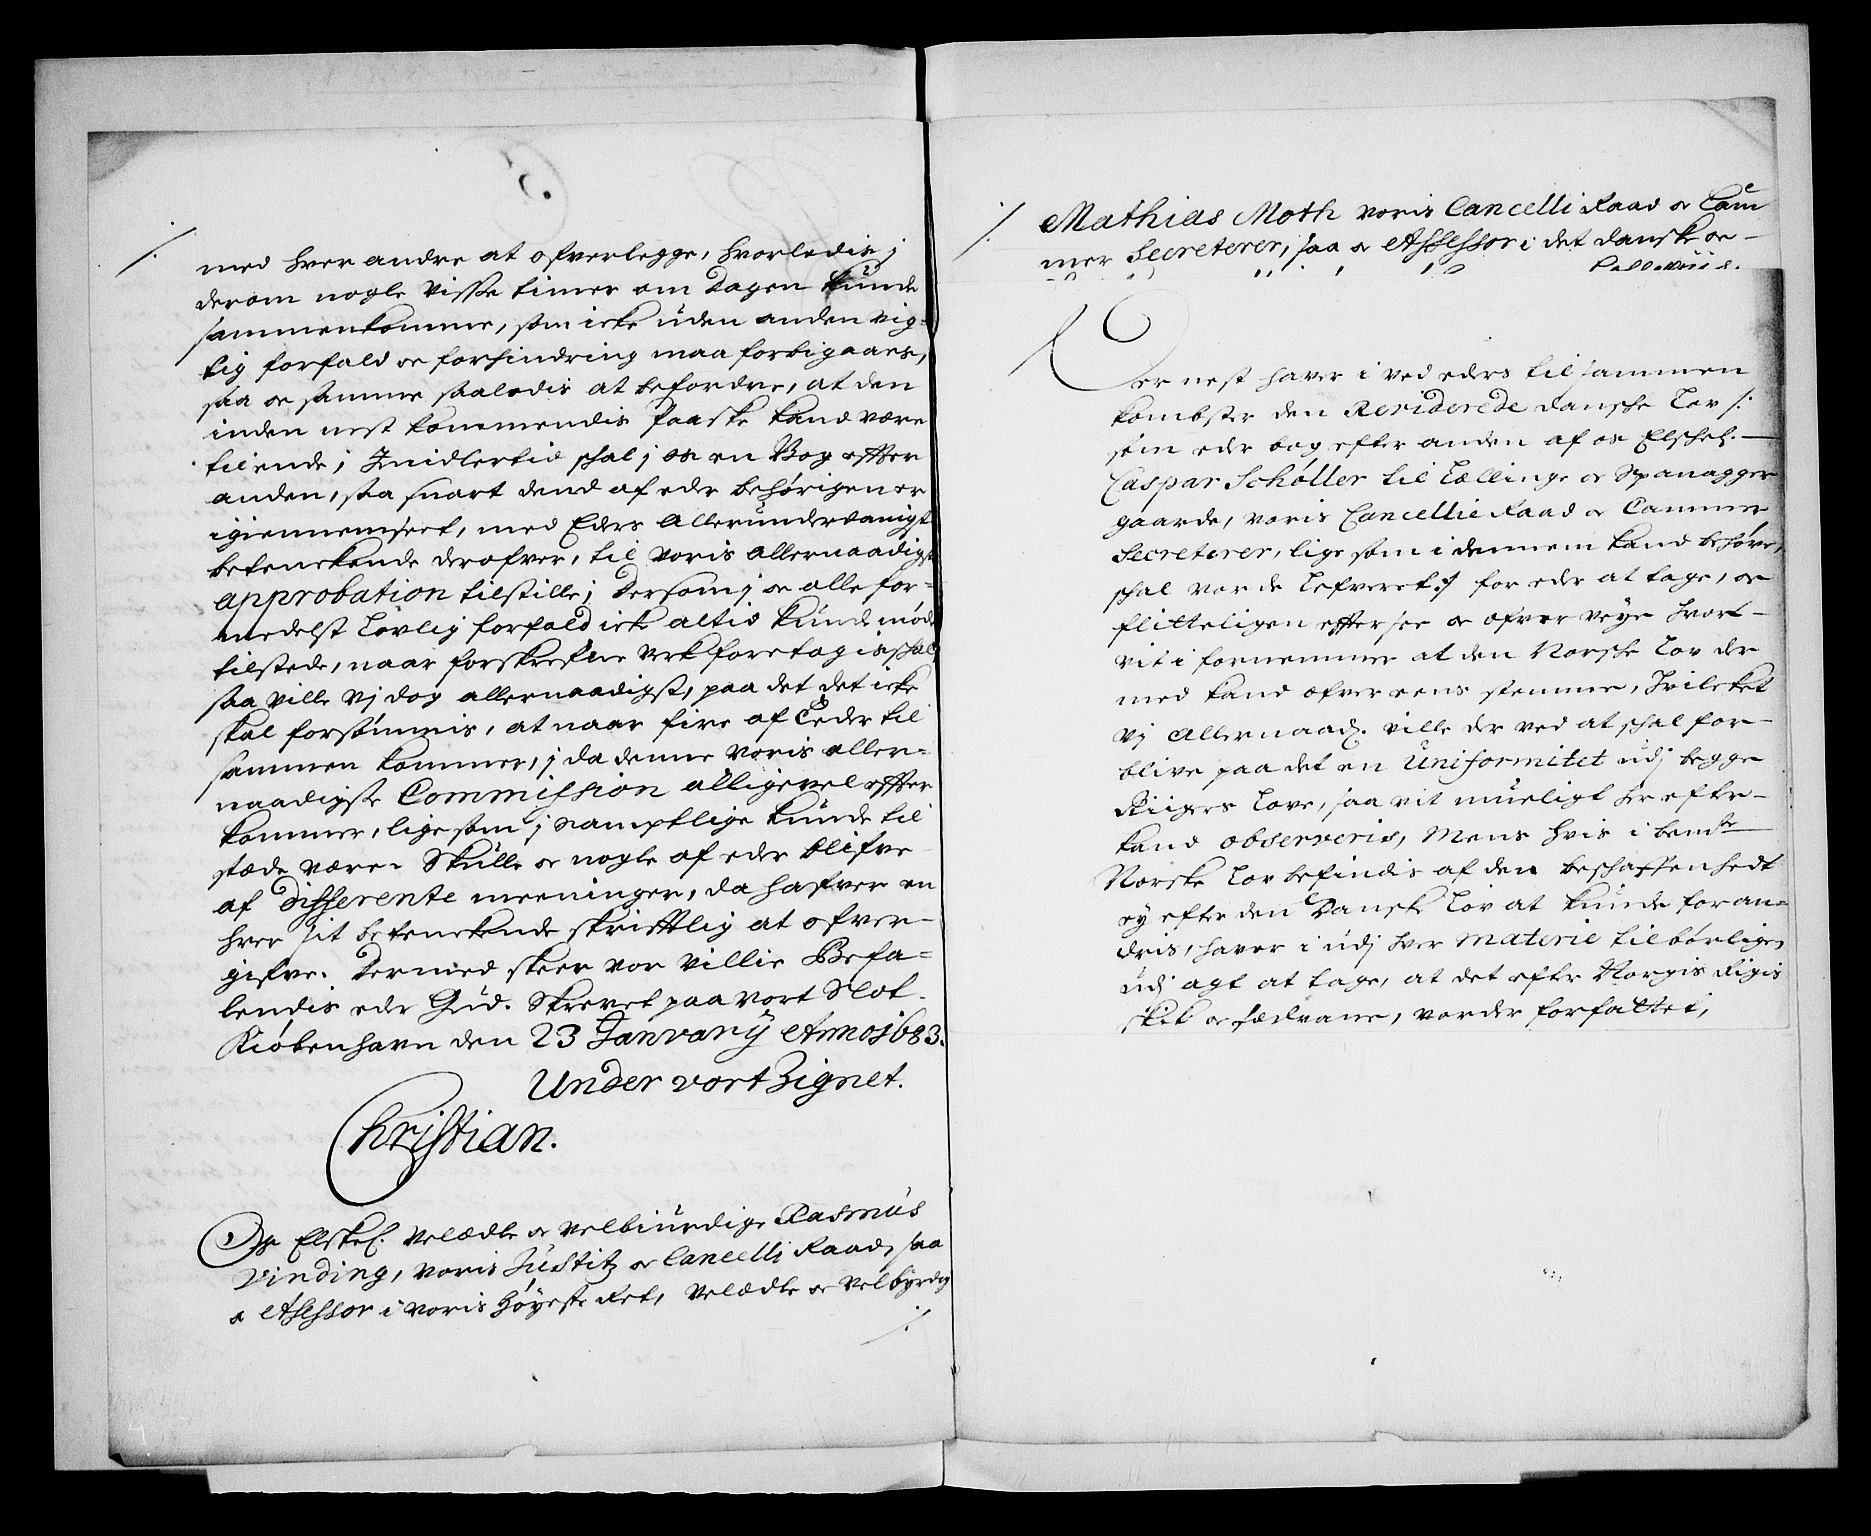 med hver andre at ofverlegge, hvorledis j
derom nogle visse timer om Dagen kunde
sammenkomme, som icke uden anden vig-
tig forfald oc forhindring maa forbigaaes,
saa oc samme saaledis at befordre, at den
inden nest kommendis Paaske kand være
til ende; Imidlertid schal j os en Bog effter
anden, saa snart dend af eder behørigen er
igiennemseet, med Eders Allerunderdanigst
betenckende derofver, til voris allernaadigst
approbation tilstille; Dersom j oc alle for-
medelst Lovlig forfald icke altid kunde møde
tilstede, naar forskrefne verk foretagis schal,
saa ville Vj dog allernaadigst, paa det det icke
skal forsømmis, at naar fire af Eeder til
sammen kommer, j da denne voris aller-
naadigste Commission alligevel effter
kommer, lige som j samptlige kunde til
stæde være. Skulle oc nogle af eder blifve
af differente meeninger, da hafver en
hver sit betenckende skrifftlig at ofver-
gifve. Dermed skeer vor villie Befa-
lendis eder Gud. Skrevet paa vort Slot
Kiøbenhavn den 23 Janvarij Anno 1683.
Under vort Zignet.
Christian.
Os Elskel. Velædle oc Velbiurdige Rasmus
Vinding, voris Justitz oc Cancelli Raad, saa
oc Assessor i voris Høyeste Ret, Velædle oc Velbyrdig
Mathias Moth voris Cancelli Raad oc Cam
mer Secreterer, saa oc Assessor i det danske oc
Dernest haver i ved eders tilsammen
kombste den Reviderede Dansche Lov /:
som eder bog efter anden af os Elschel.
Caspar Schøller til Lællinge oc Spanagger
gaarde, voris Cancellie Raad oc Cammer
Secreterer, lige som i dennem kand behøve,
schal vorde lefveret :/ for eder at tage, oc
flitteligen efftersee oc ofverveye hvort-
vit i fornemmer at den Norsche Lov der
med kand ofvereens stemme, hvilcket
Vj Allernaad. ville der ved at schal for-
blive paa det en Uniformitet udj begge
Riigers Love, saa vit mueligt her efter-
kand observeris, Mens hvis i bemte
Norske Lov befindis af den beschaffenhedt
ey efter den Dansk Lov at kunde foran-
dris, haver i udj hver materie tilbørligen
udj agt at tage, at det efter Norgis Rigis
skik oc sædvane, vorder forfattet,